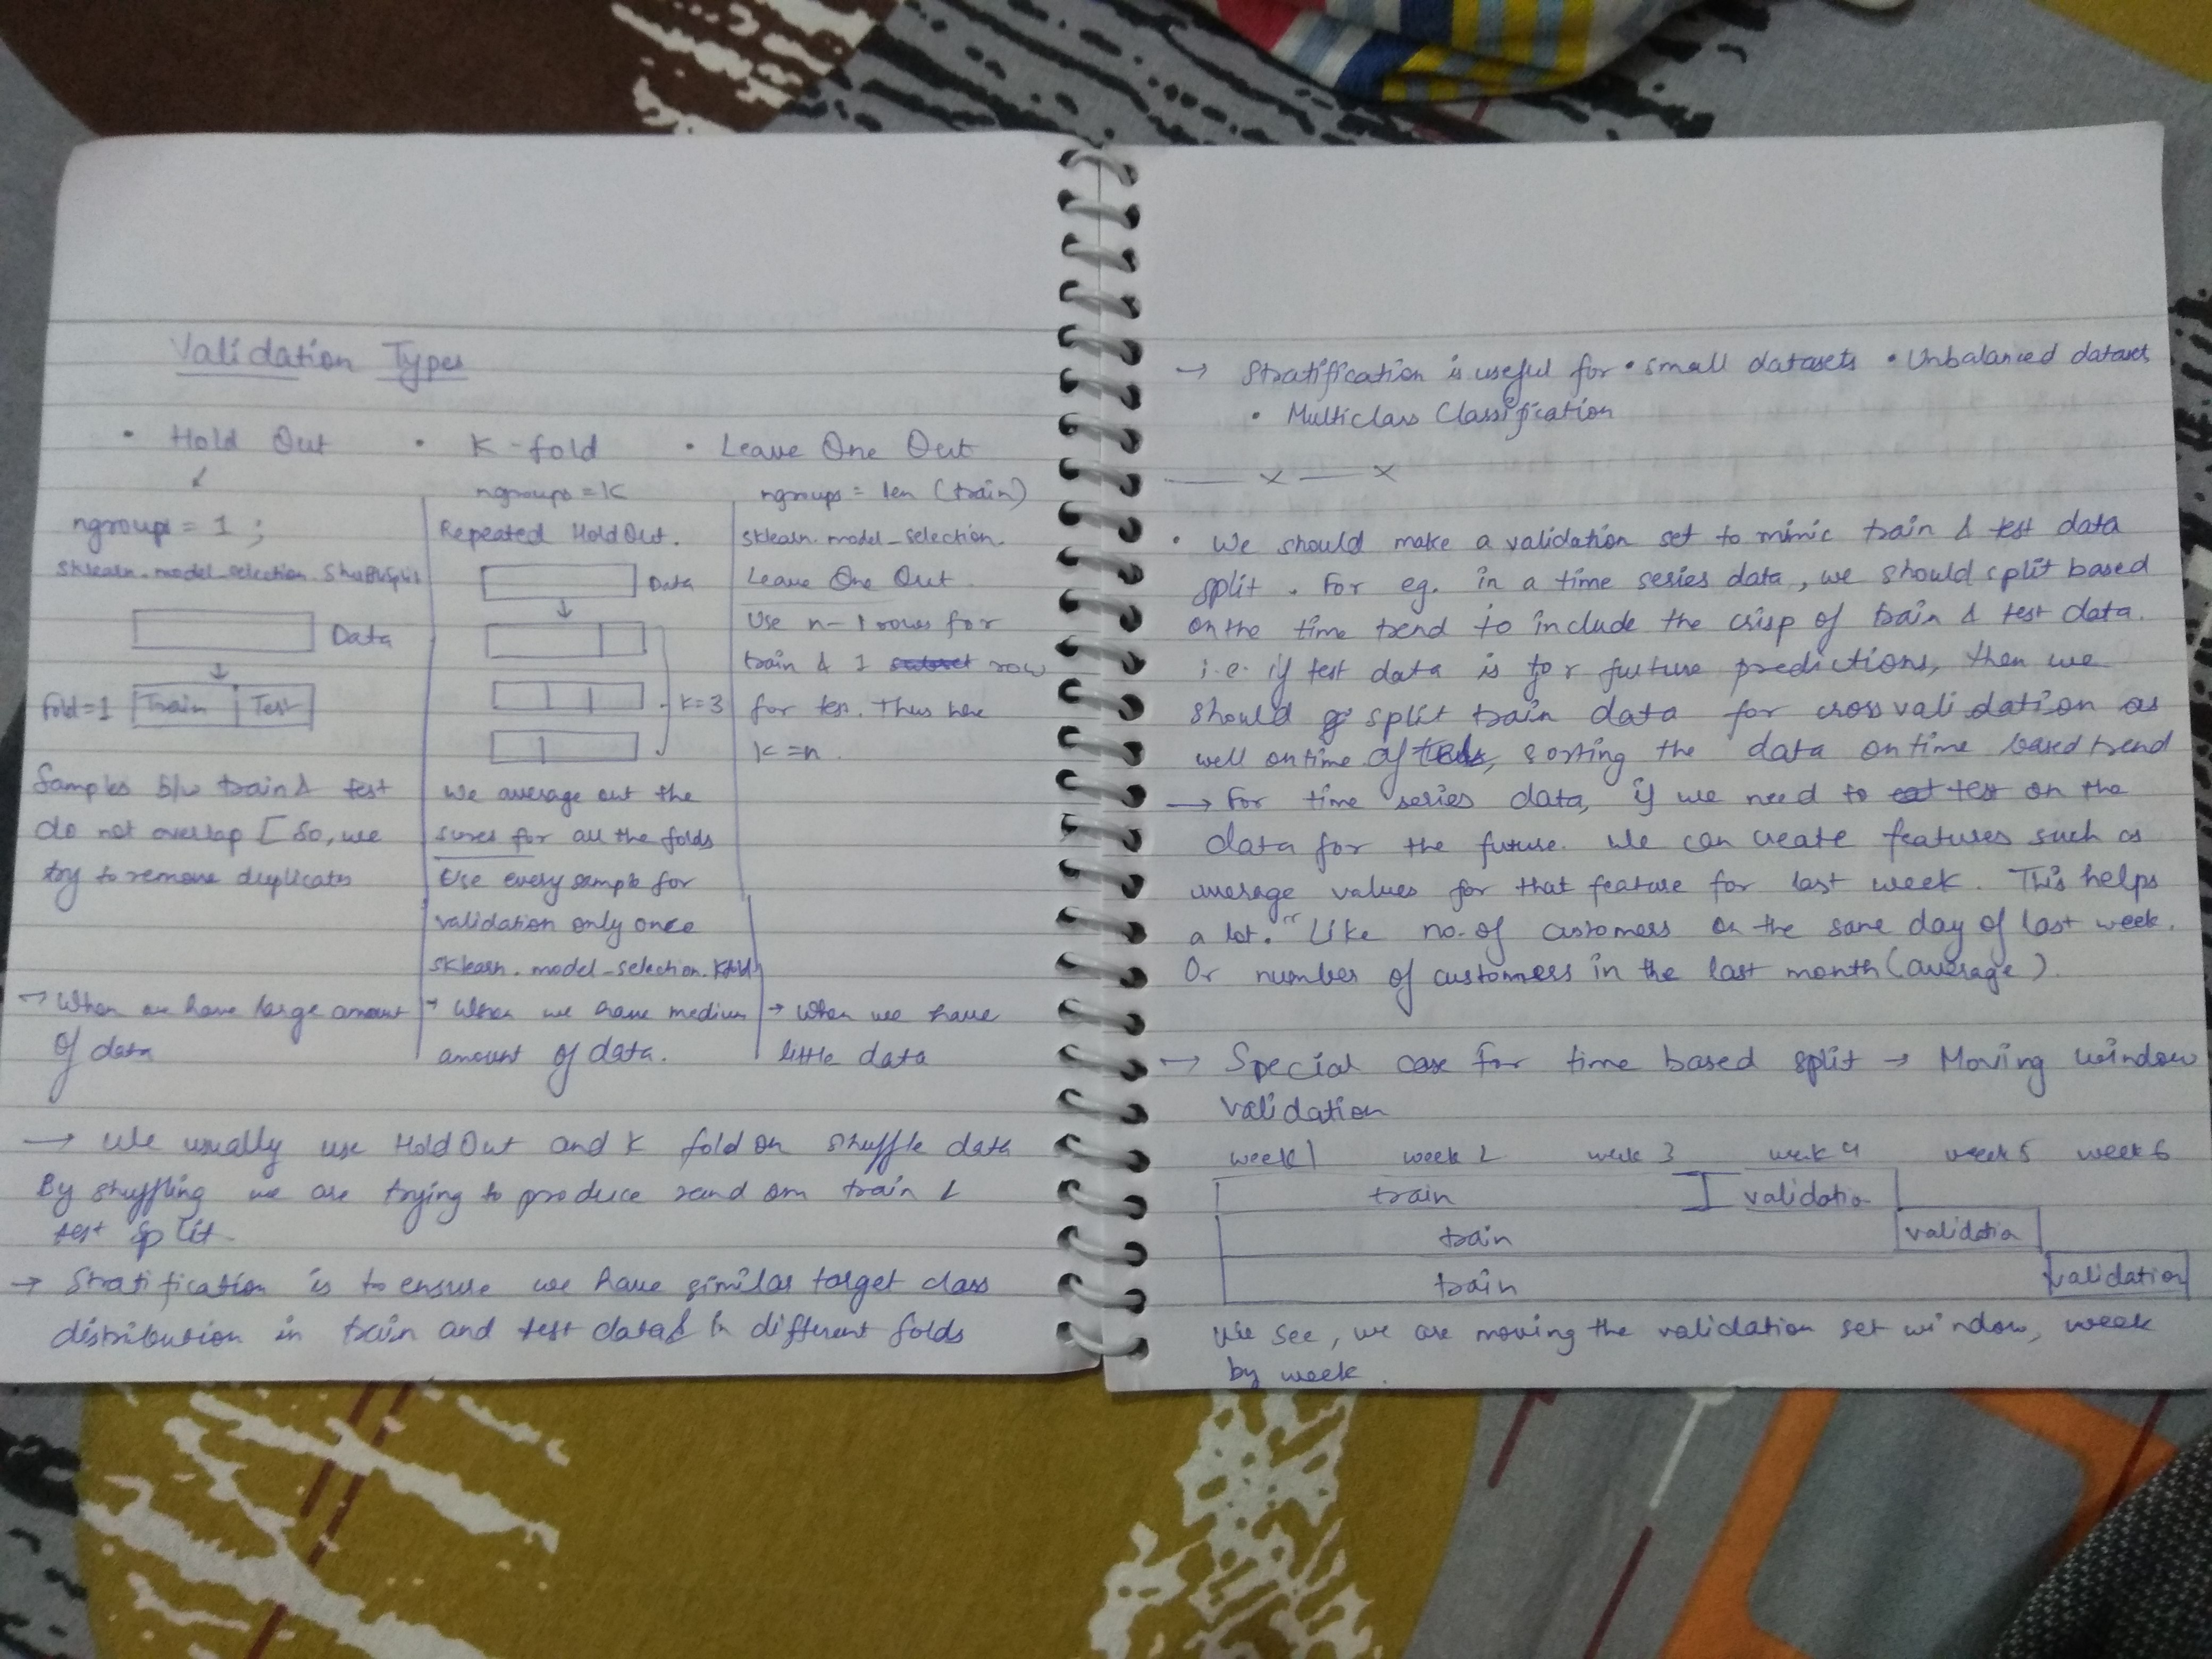 Validation Types
• Hold Out
ngroups = 1 ;
sklearn.model_selection.ShuffleSplit
Data
fold=1 Train Test
Samples b/w train & test
do not overlap [ So, we
try to remove duplicates
→ When we have large amount
of data
• K-fold
ngroups = K
Repeated HoldOut.
Data
K=3
We average out the
for all the folds
Use every sample for
validation only once
sklearn.model_selection.Kfold
→ When we have medium
amount of data.
• Leave One Out
ngroups = len (train)
sklearn.model_selection.
Leave One Out
Use n-1 rows for
train & 1 row
for test. Thus here
K = n.
→ When we have
little data
→ We usually use HoldOut and K fold on shuffle data
By shuffling we are trying to produce random train &
test split.
→ Stratification is to ensure we have similar target class
distribution in train and test data in different folds
→ Stratification is useful for • small datasets • Unbalanced dataset
• Multiclass Classification
— x — x
• We should make a validation set to mimic train & test data
split. For eg. in a time series data, we should split based
on the time trend to include the crisp of train & test data.
i.e. if test data is for future predictions, then we
should split train data for cross validation as
well on time after sorting the data on time based trend
→ For time series data, if we need to test on the
data for the future. We can create features such as
average values for that feature for last week. This helps
a lot. Like no. of customers on the same day of last week.
Or number of customers in the last month (average).
→ Special case for time based split → Moving window
validation
week 1 week 2 week 3 week 4 week 5 week 6
train validatio
train validatio
train validation
We see, we are moving the validation set window, week
by week.